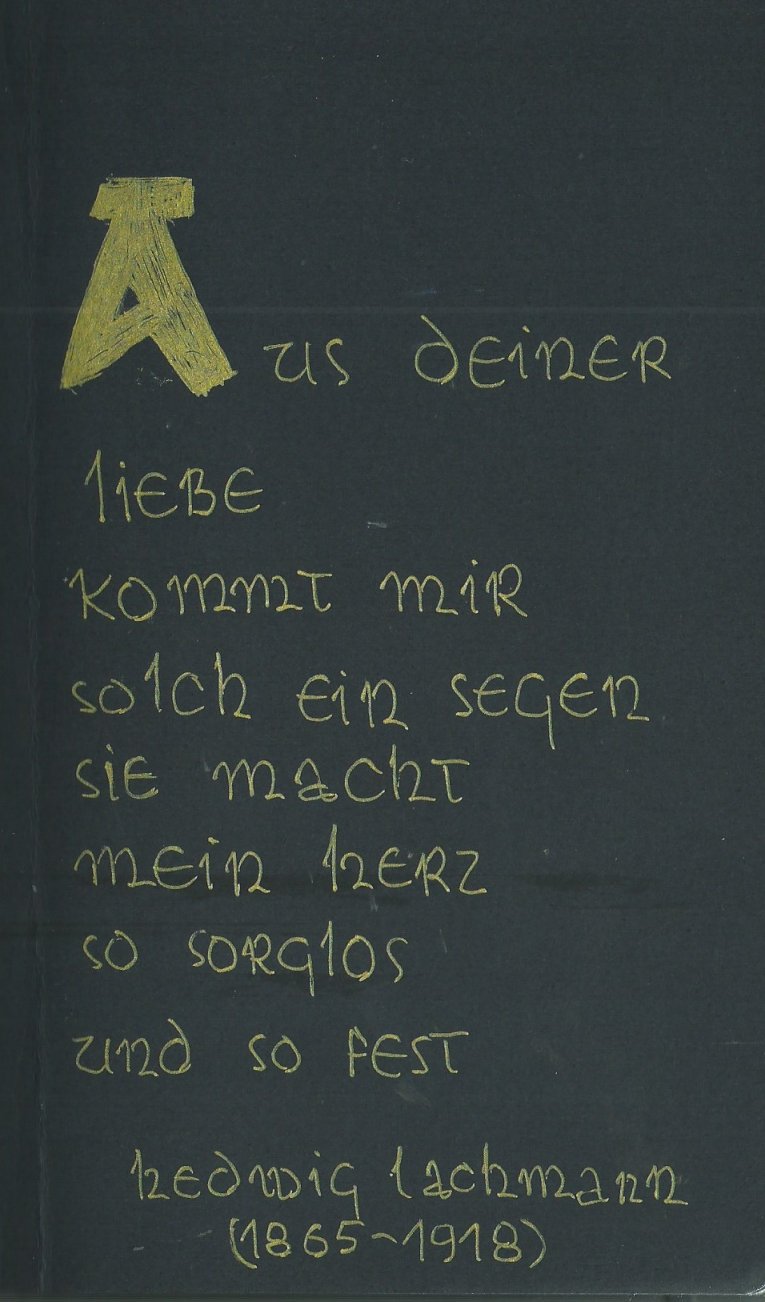 Aus deiner
liebe
kommt mir
solch ein segen
sie macht
mein herz
so sorglos
und so fest
hedwig lachmann
(1865-1918)